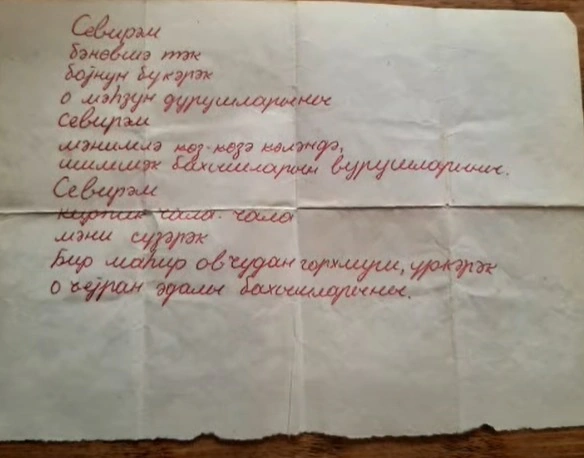 Севирәм
бәновшә тәк
бојнун бүкәрәк
о мәһзун дурушларыны
севирәм
мәнимлә көз-көзә кәләндә,
шимшәк бахышлары вурушларыны.
Севирәм
кирпик чала-чала
мәни сүзәрәк
Бир маһир овчудан горхмуш, үркәрәк
о ҹејран әдалы бахышларыны.